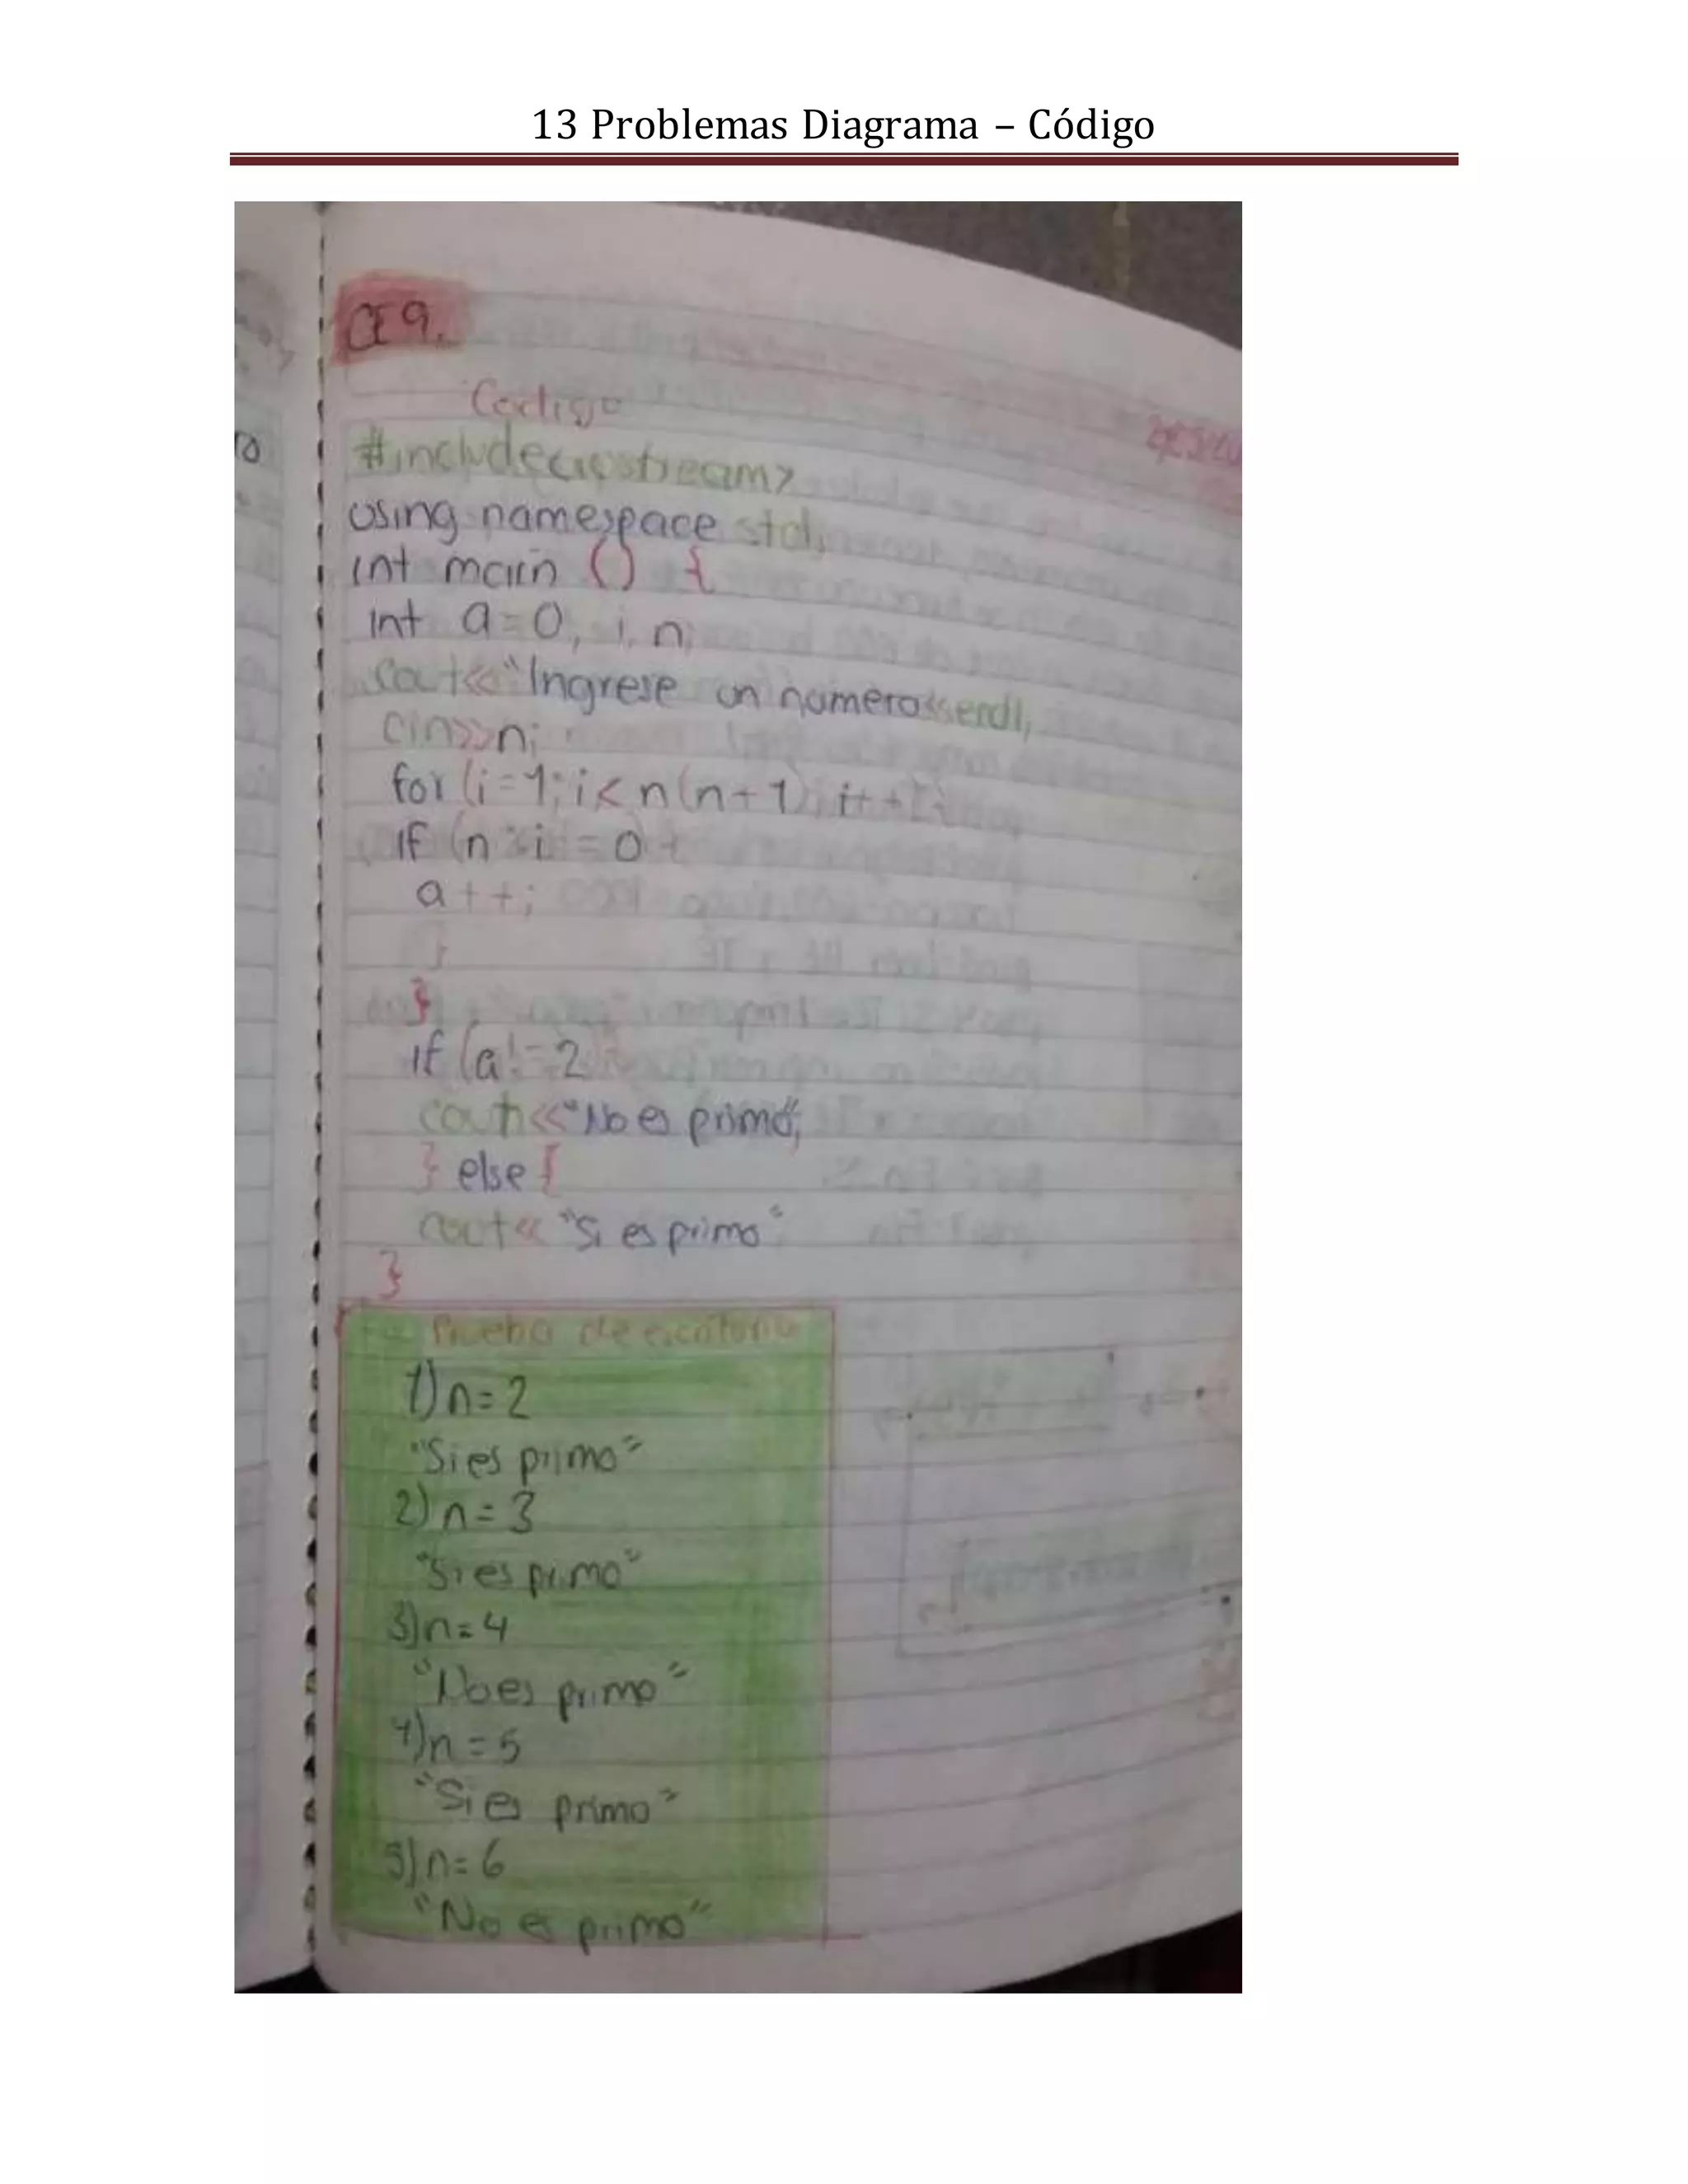 13 Problemas Diagrama – Código
CE 9.
Codigo
#include<iostream>
using namespace std;
int main () {
int a=0, i, n;
cout<<"Ingrese un numero<<endl;
cin>>n;
for (i=1; i< n(n+1); i++){
if (n%i=0){
a++;
}
}
if (a!=2){
cout<<"No es primo";
} else {
cout<< "Si es primo"
}
Prueba de escritorio
1) n=2
"Si es primo"
2) n=3
"Si es primo"
3) n=4
"No es primo"
4) n=5
"Si es primo"
5) n=6
"No es primo"